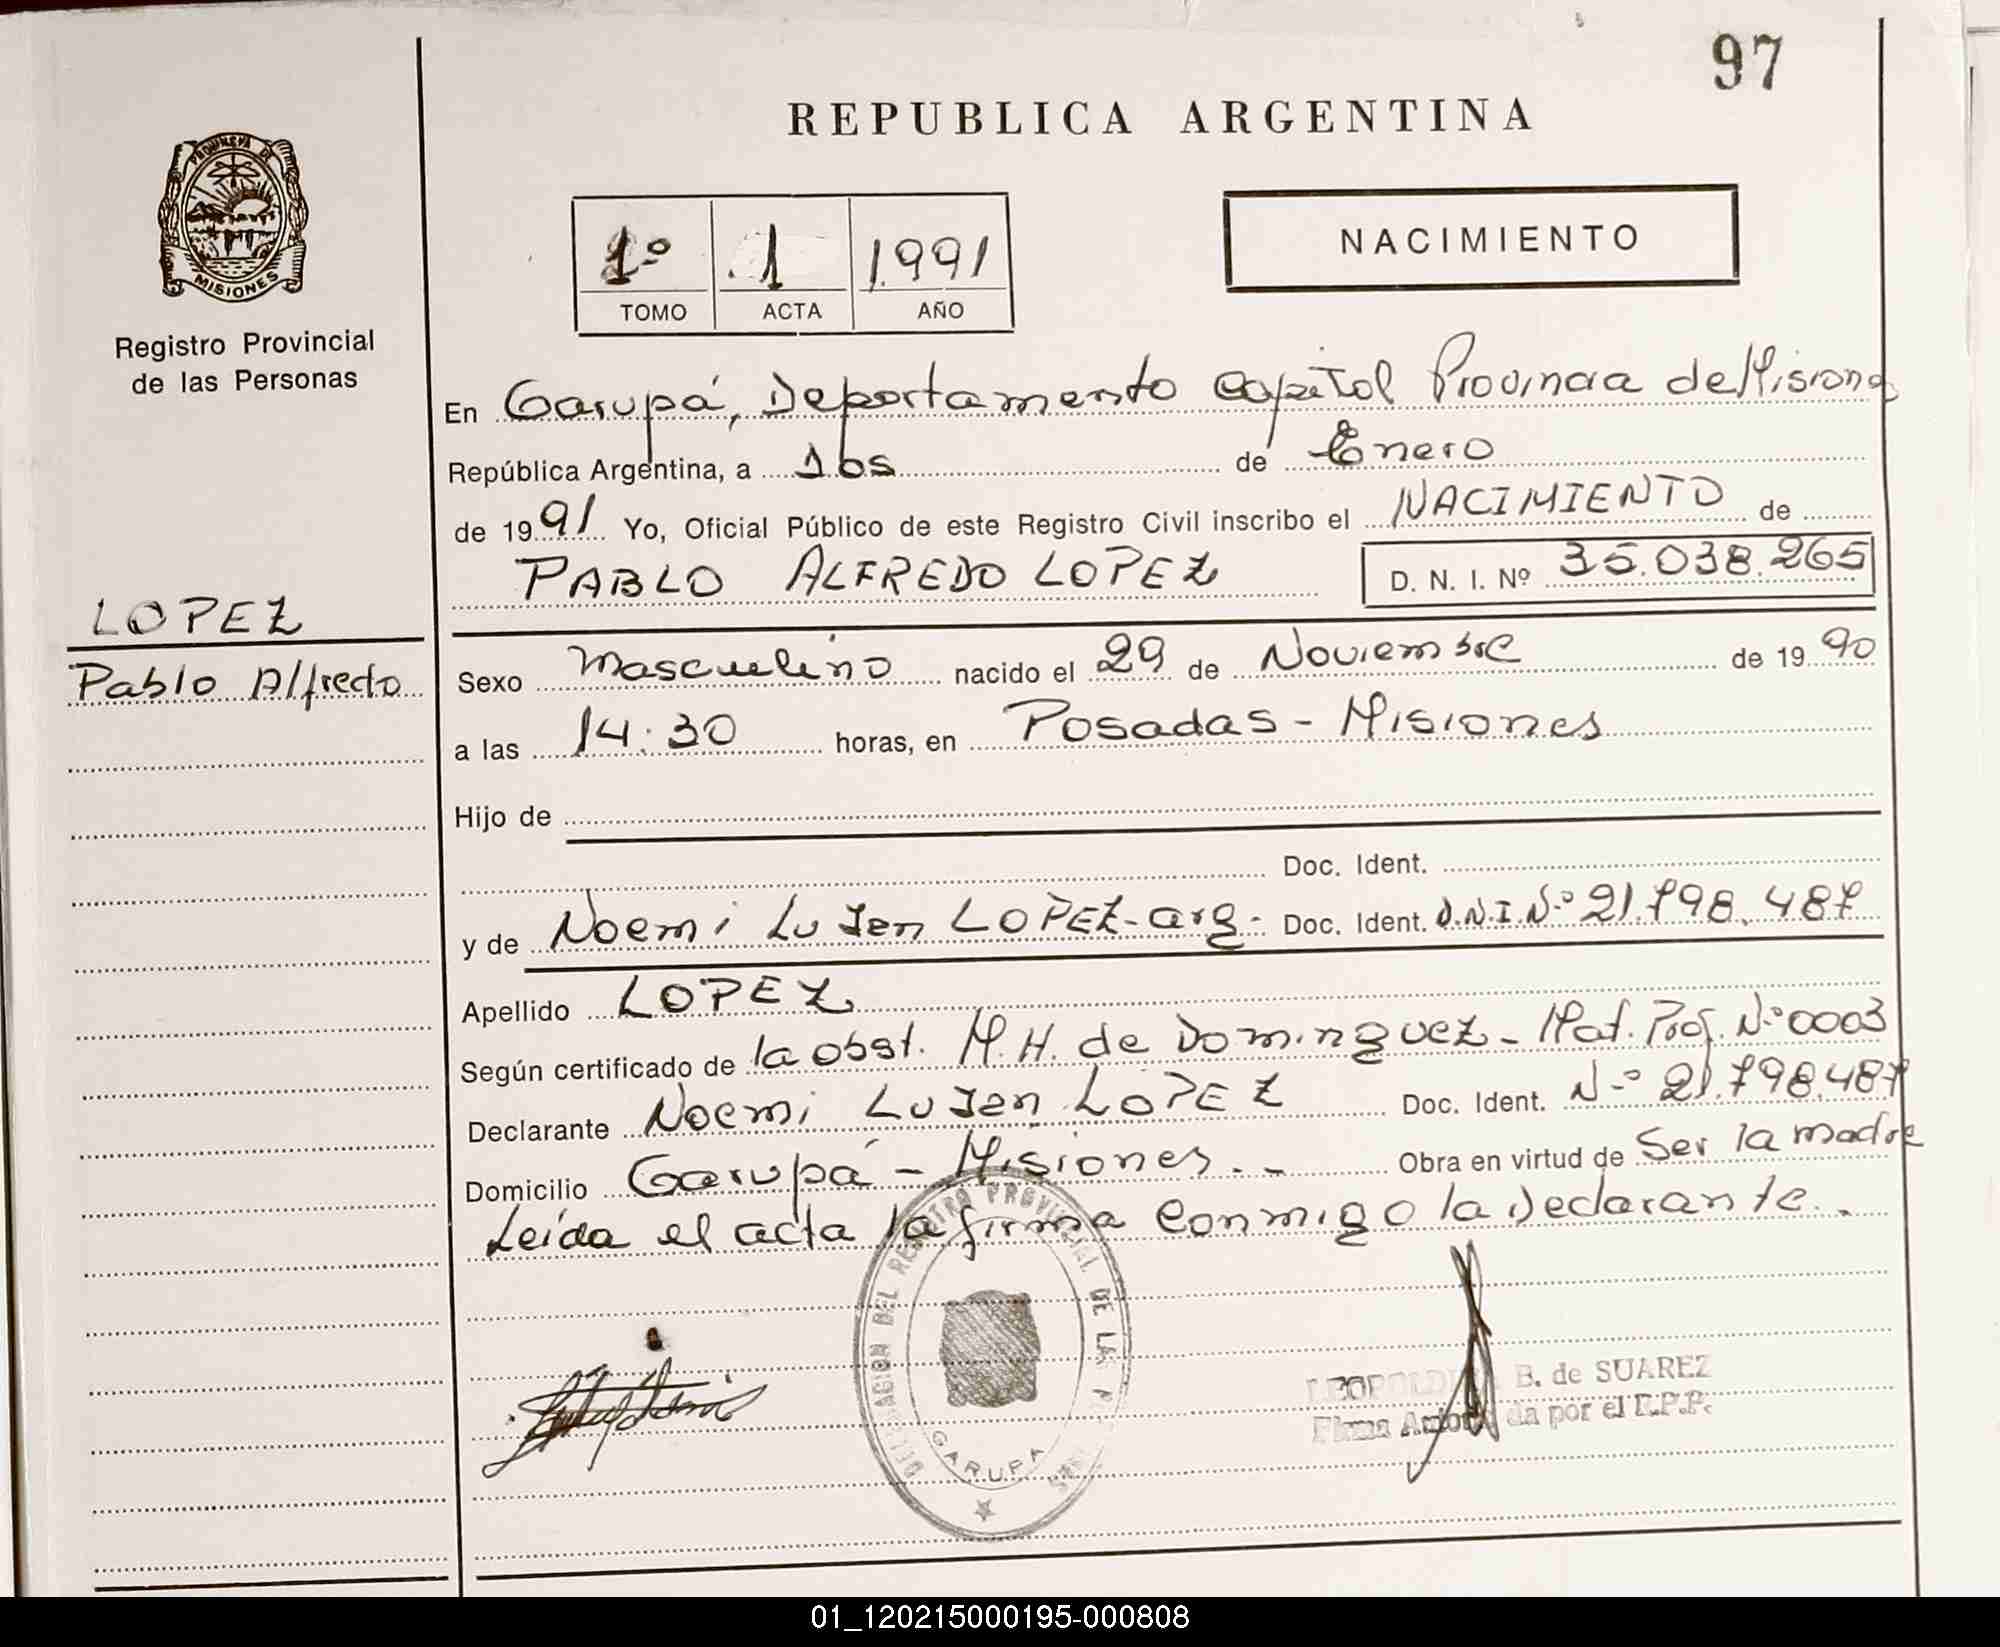 97
REPUBLICA ARGENTINA
PROVINCIA DE
MISIONES
Registro Provincial
de las Personas
1º 1 1.991
TOMO ACTA AÑO
NACIMIENTO
En Garupá, Departamento Capital Provincia de Misiones
República Argentina, a 1os de Enero
de 1991 Yo, Oficial Público de este Registro Civil inscribo el NACIMIENTO de
PABLO ALFREDO LOPEZ D. N. I. Nº 35.038.265
LOPEZ
Pablo Alfredo
Sexo Masculino nacido el 29 de Noviembre de 1990
a las 14.30 horas, en Posadas - Misiones
Hijo de
Doc. Ident.
y de Noemi Lujen LOPEZ - arg - Doc. Ident. D.N.I. Nº 21.798.487
Apellido LOPEZ
Según certificado de la obst. M.H. de Dominguez - Mat. Prof. Nº 0003
Declarante Noemi Lujen LOPEZ Doc. Ident. Nº 21.798.487
Domicilio Garupá - Misiones. - Obra en virtud de Ser la madre
Leida el acta la firma conmigo la Declarante. -
DELEGACION DEL REGISTRO PROVINCIAL DE LAS PERSONAS
GARUPA
B. de SUAREZ
Firma Autorizada por el R.P.P.
01_120215000195-000808